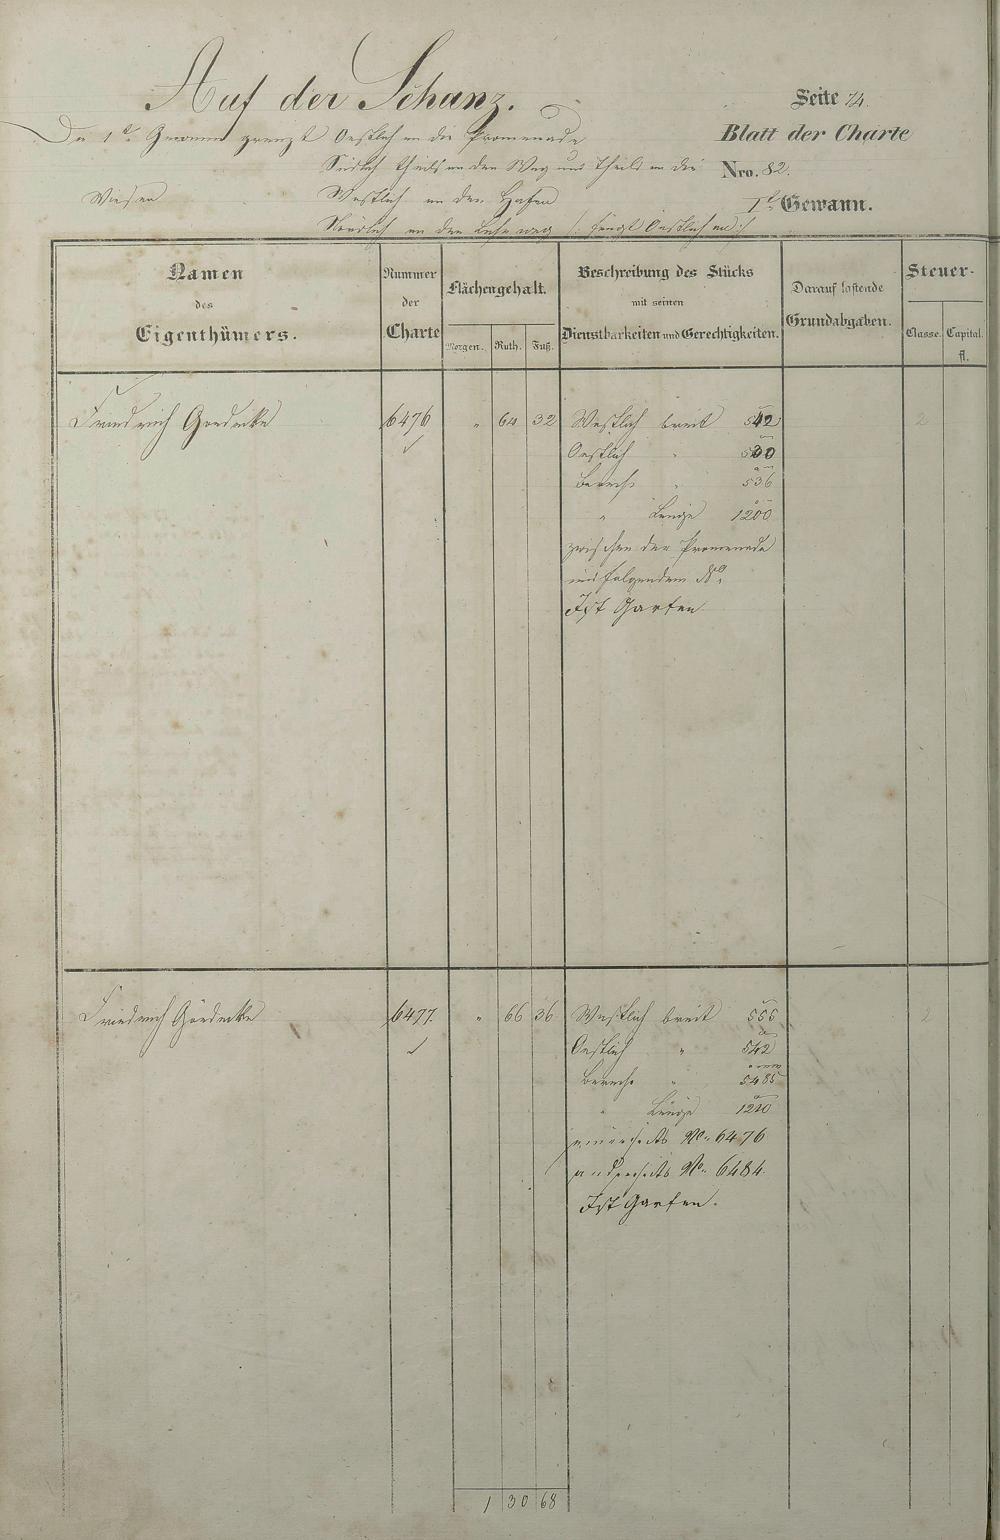 Auf der Schanz.
Seite 74.
Die 1te Gewann grenzt Oestlich an die Promenade
Blatt der Charte
Südlich theils an den Weg und theils an die
Nro. 82.
Wiesen
Westlich an den Hafen
1te Gewann.
Nördlich an den Lehrweg /: fängt Oestlich an :/
Namen des Eigenthümers.
Nummer der Charte
Flächengehalt.
Morgen. Ruth. Fuß.
Beschreibung des Stücks mit seinen Dienstbarkeiten und Gerechtigkeiten.
Darauf lastende Grundabgaben.
Steuer-
Classe. Capital. fl.
Friedrich Goedecke 6476 " 64 32 Westlich breit 542 2
Oestlich " 530
Berech. " 536
" Länge 1200
zwischen der Promenade
und folgendem No.
Ist Garten.
Friedrich Gördecke 6477. " 66 36 Westlich breit 555 2
Oestlich " 542
Berech. " 5485
" Länge 1210
einerseits No. 6476
anderseits No. 6484.
Ist Garten.
1 30 68